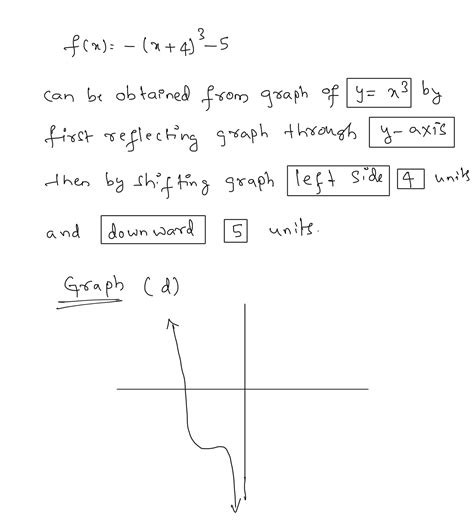 f(x) = - (x+4)³ - 5
can be obtained from graph of y = x³ by
first reflecting graph through y-axis
then by shifting graph left side 4 units
and downward 5 units.
Graph (d)